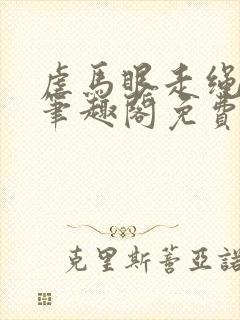 虐马眼走绳
笔趣阁免费
克里斯蒂亚诺